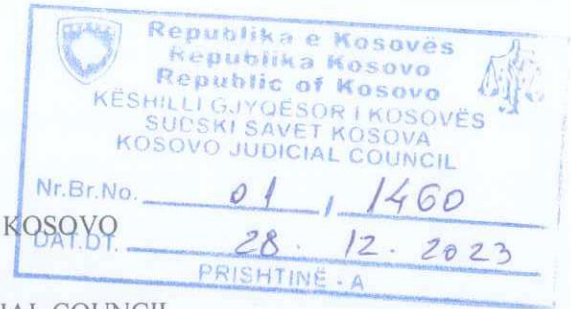 Republika e Kosovës
Republika Kosovo
Republic of Kosovo
KËSHILLI GJYQËSOR I KOSOVËS
SUDSKI SAVET KOSOVA
KOSOVO JUDICIAL COUNCIL
Nr.Br.No. 01 / 1460
KOSOVO
DAT.DT. 28. 12. 2023
PRISHTINË - A
IAL COUNCIL